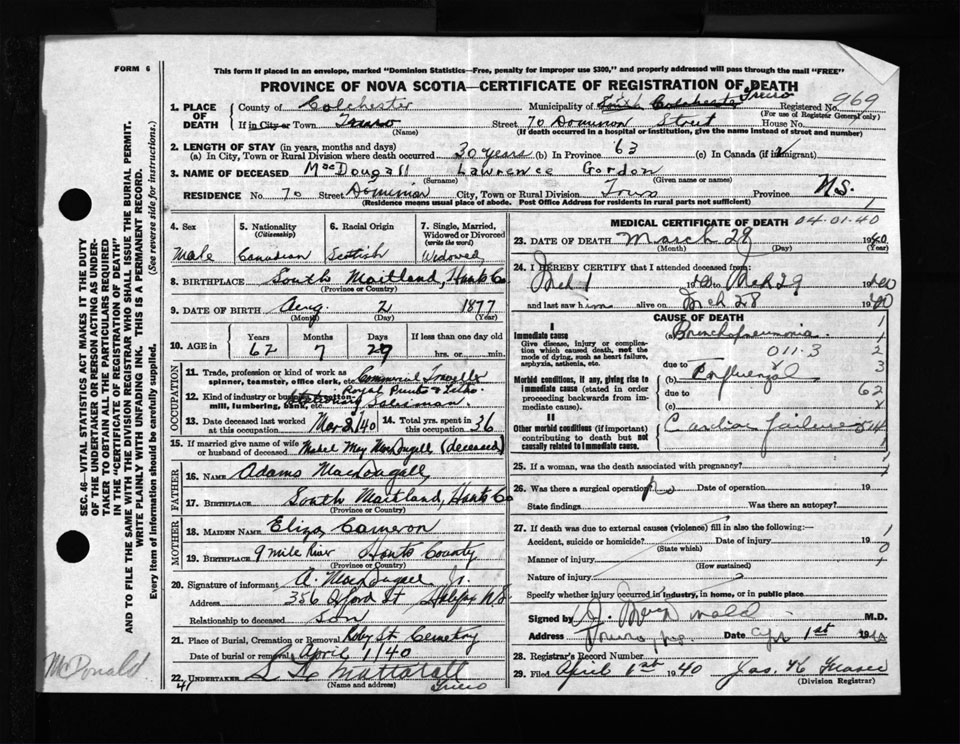 FORM 6
This form if placed in an envelope, marked "Dominion Statistics—Free, penalty for improper use $300," and properly addressed will pass through the mail "FREE"
PROVINCE OF NOVA SCOTIA—CERTIFICATE OF REGISTRATION OF DEATH
1. PLACE OF DEATH
County of Colchester Municipality of Colchester Truro Registered No. 969
(For use of Registrar General only)
If in City or Town Truro Street 70 Dominion Street House No.
(Name) (If death occurred in a hospital or institution, give the name instead of street and number)
2. LENGTH OF STAY (in years, months and days)
(a) In City, Town or Rural Division where death occurred 30 years (b) In Province 63 (c) In Canada (if immigrant)
3. NAME OF DECEASED MacDougall Lawrence Gordon
(Surname) (Given name or names)
RESIDENCE No. 70 Street Dominion City, Town or Rural Division Truro Province N.S.
(Residence means usual place of abode. Post Office Address for residents in rural parts not sufficient)
4. Sex 5. Nationality (Citizenship) 6. Racial Origin 7. Single, Married, Widowed or Divorced (write the word)
Male Canadian Scottish Widowed
8. BIRTHPLACE South Maitland, Hants Co
(Province or Country)
9. DATE OF BIRTH Aug. 2 1877
(Month) (Day) (Year)
10. AGE in Years Months Days If less than one day old
62 7 29 hrs. or min.
OCCUPATION
11. Trade, profession or kind of work as spinner, teamster, office clerk, etc. Commercial Traveller
12. Kind of industry or business mill, lumbering, bank, etc. Royal Print & Litho. Salesman
13. Date deceased last worked at this occupation Mar 2/40 14. Total yrs. spent in this occupation 36
15. If married give name of wife or husband of deceased Mabel May MacDougall (deceased)
FATHER
16. NAME Adams MacDougall
17. BIRTHPLACE South Maitland, Hants Co
(Province or Country)
MOTHER
18. MAIDEN NAME Eliza Cameron
19. BIRTHPLACE 9 mile River Hants County
(Province or Country)
20. Signature of informant A. MacDougall Jr.
Address 356 Oxford St Halifax N.S.
Relationship to deceased Son
21. Place of Burial, Cremation or Removal Roby St. Cemetery
Date of burial or removal April 1/40
22. UNDERTAKER Mattatall
(Name and address) Truro
41
McDonald
MEDICAL CERTIFICATE OF DEATH 04-01-40
23. DATE OF DEATH March 29 1940
(Month) (Day) (Year)
24. I HEREBY CERTIFY that I attended deceased from
Mch 1 1940 to Mch 29 1940
and last saw him alive on Mch 28 1940
CAUSE OF DEATH
I
Immediate cause
Give disease, injury or complication which caused death, not the mode of dying, such as heart failure, asphyxia, asthenia, etc.
(a) Bronchopneumonia
011.3
due to
Morbid conditions, if any, giving rise to immediate cause (stated in order proceeding backwards from immediate cause).
(b) Influenza
due to
(c)
1
1
2
3
62
x
II
Other morbid conditions (if important) contributing to death but not causally related to immediate cause.
Cardiac failure
25. If a woman, was the death associated with pregnancy?
26. Was there a surgical operation? No Date of operation 19
State findings Was there an autopsy?
27. If death was due to external causes (violence) fill in also the following:
Accident, suicide or homicide? Date of injury 19
(State which)
Manner of injury
(How sustained)
Nature of injury
Specify whether injury occurred in industry, in home, or in public place
Signed by M.D.
Address Truro, N.S. Date Apr 1st 1940
28. Registrar's Record Number
29. Filed April 6th 1940 Jas. Fraser
(Division Registrar)
SEC. 46—VITAL STATISTICS ACT MAKES IT THE DUTY
OF THE UNDERTAKER OR PERSON ACTING AS UNDER-
TAKER TO OBTAIN ALL THE PARTICULARS REQUIRED
IN THE "CERTIFICATE OF REGISTRATION OF DEATH"
AND TO FILE THE SAME WITH THE DIVISION REGISTRAR WHO SHALL ISSUE THE BURIAL PERMIT.
WRITE PLAINLY WITH UNFADING INK. THIS IS A PERMANENT RECORD.
Every item of information should be carefully supplied. (See reverse side for instructions.)